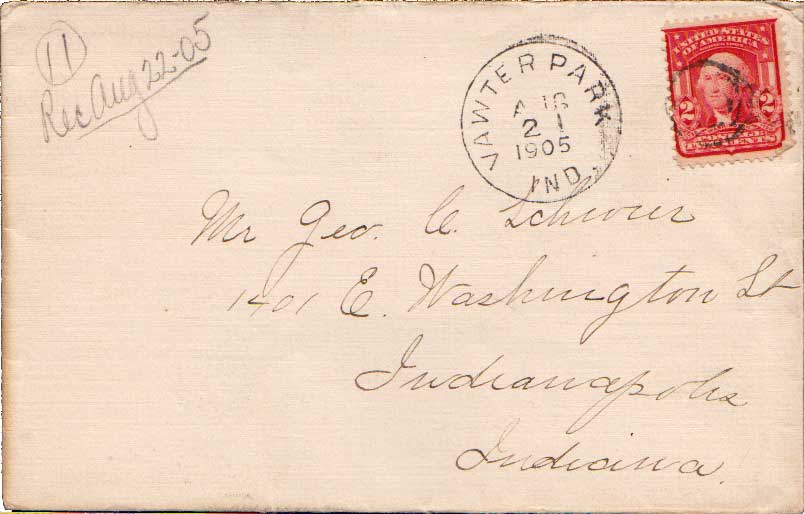 11
Rec Aug 22-05
VAWTER PARK
AUG
21
1905
IND.
UNITED STATES
OF AMERICA
2 2
POSTAGE
TWO CENTS
Mr Geo. C.
E. Washington St
Indianapolis
Indiana.